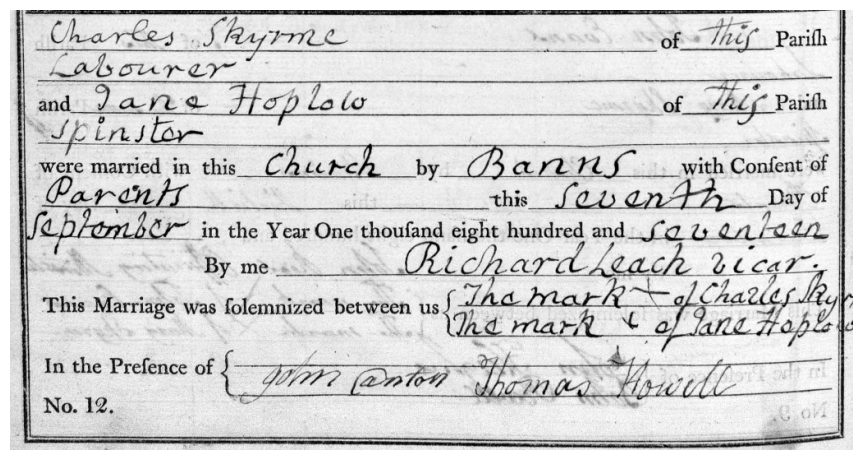 Charles Skyrme of this Parish
Labourer
and Jane Hoplow of this Parish
Spinster
were married in this Church by Banns with Consent of
Parents this seventh Day of
September in the Year One thousand eight hundred and seventeen
By me Richard Leach vicar.
This Marriage was solemnized between us { The mark + of Charles Skyr
The mark + of Jane Hoplow
In the Presence of { John Canton Thomas Howell
No. 12.